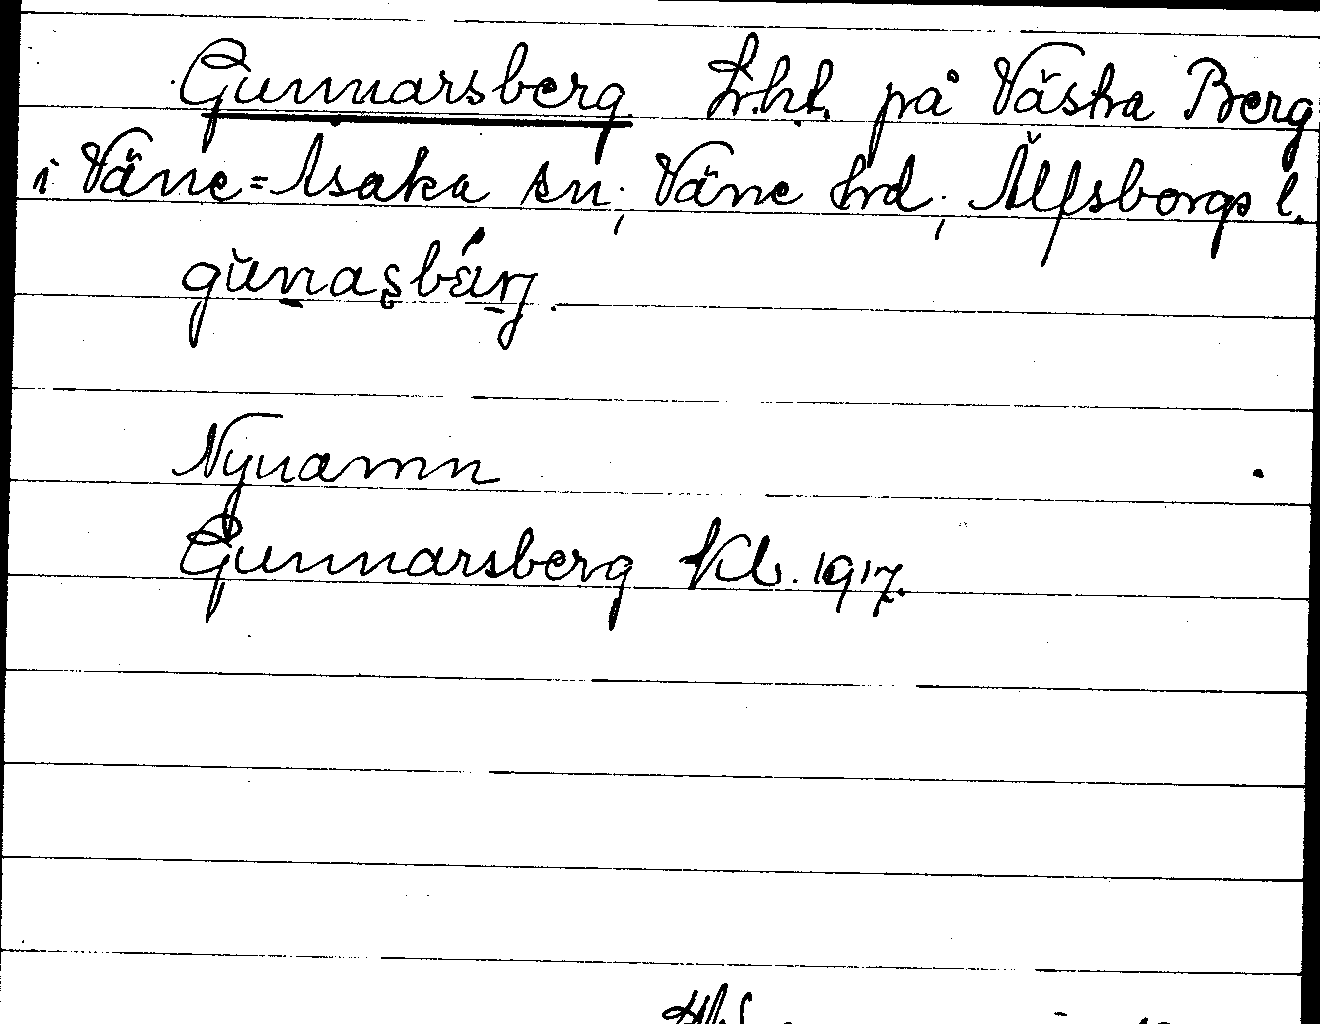 Gunnarsberg Lht. på Västra Berg
i Väne=Åsaka sn; Väne hrd; Älfsborgs l.
Nynamn
Gunnarsberg Kb. 1917.